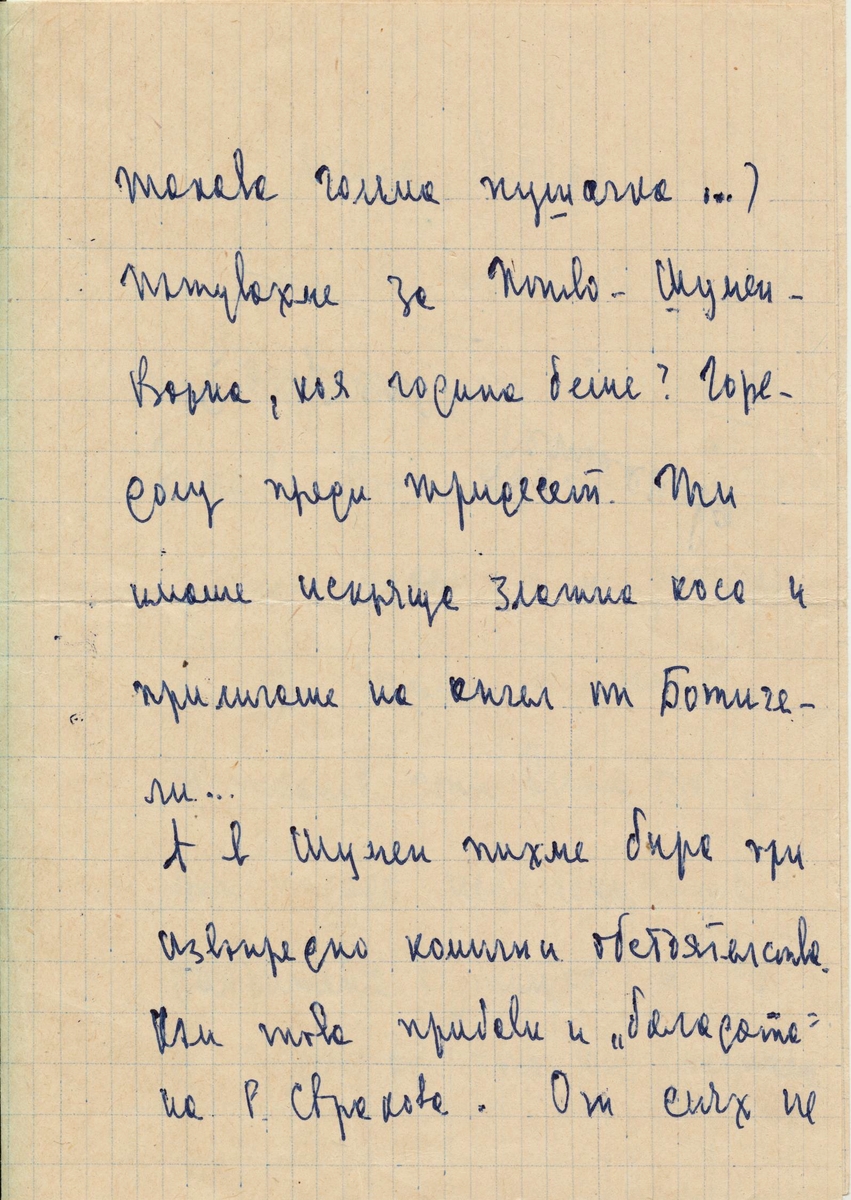 такава голяма пушачка ...)
Пътувахме за Попово - Шумен -
Варна, коя година беше? Горе-
долу преди тридесет. Ти
имаше искряща златна коса и
приличаше на ангел от Ботиче-
ли...
А в Шумен пихме бира при
извънредно комични обстоятелства.
Към това прибави и „баладата"
на Р. Свракова. От смях не